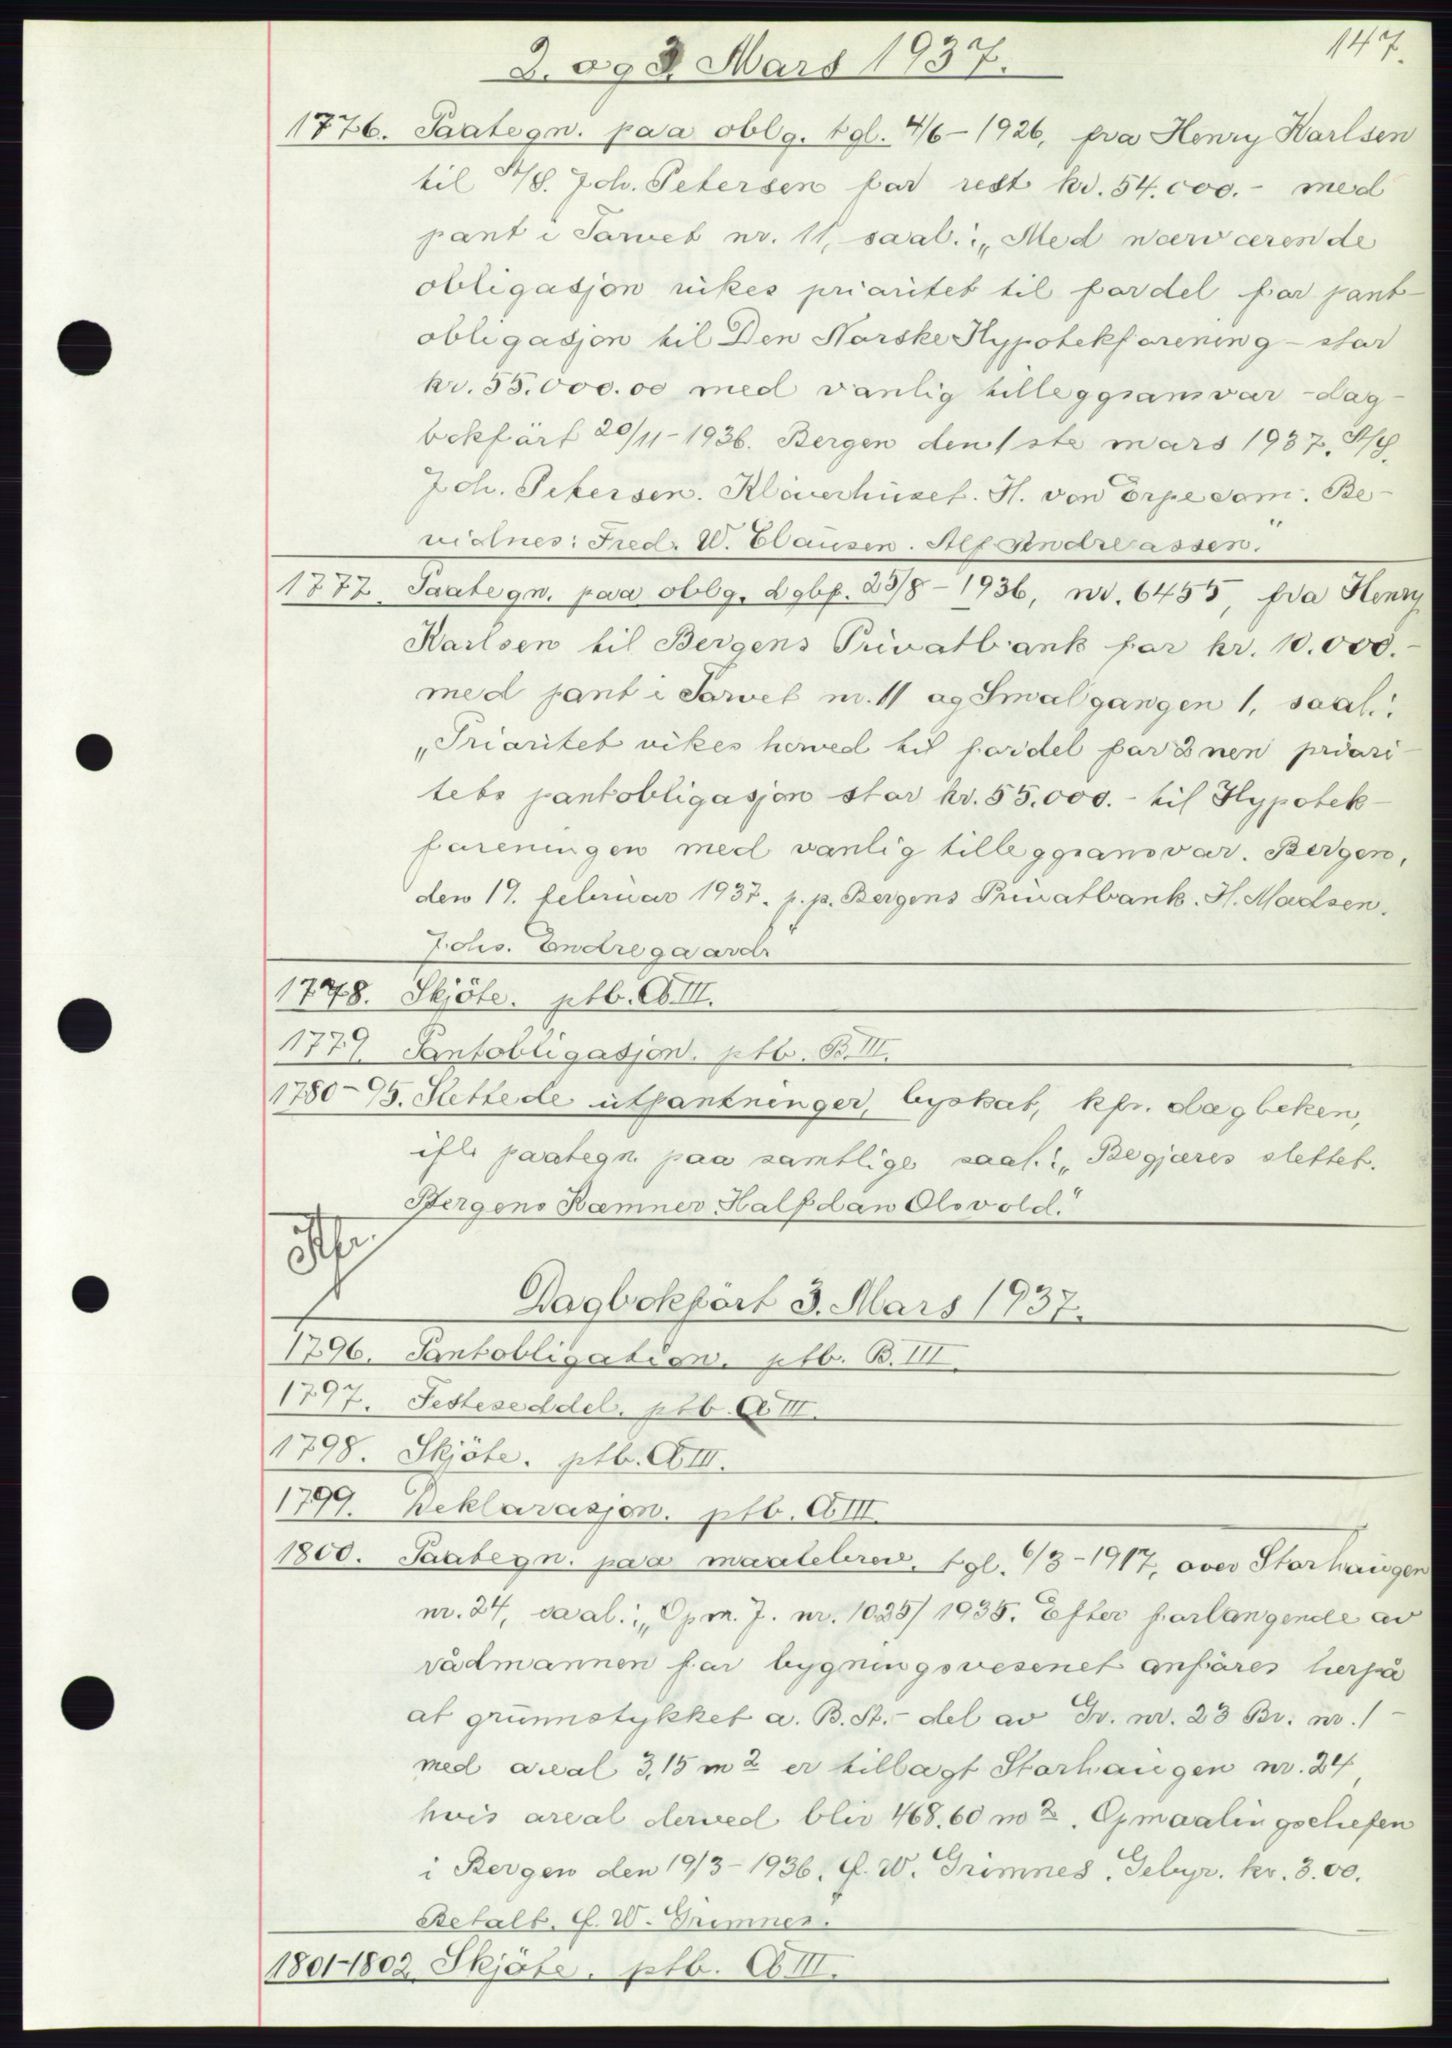 147.
2. og 3. Mars 1937.
1776. Paategn. paa oblg. tgl. 4/6-1926, fra Henry Karlsen
til A/S. Joh. Petersen for rest kr. 54.000.- med
pant i Torvet nr. 11, saal.: „Med nærværende
obligasjon vikes prioritet til fordel for pant-
obligasjon til Den Norske Hypotekforening - stor
kr. 55.000.00 med vanlig tilleggsansvar - dag-
bokført 20/11-1936. Bergen den 1ste mars 1937. A/S.
Joh. Petersen. Kløverhuset. H. von Erpecom. Be-
vidnes: Fred. W. Clausen. Alf Andreassen."
1777. Paategn. paa oblg. dgbf. 25/8-1936, nr. 6455, fra Henry
Karlsen til Bergens Privatbank for kr. 10.000.-
med pant i Torvet nr. 11 og Smalgangen 1, saal.:
„Prioritet vikes herved til fordel for 3nen priori-
tets pantobligasjon stor kr. 55.000.- til Hypotek-
foreningen med vanlig tilleggsansvar. Bergen,
den 19. februar 1937. p.p. Bergens Privatbank. H. Madsen.
Johs. Endregaard"
1778. Skjöte. ptb. A III.
1779. Pantobligasjon. ptb. B. III.
1780-95. Slettede utpantninger, byskat, kfr. dagboken,
ifl. paategn. paa samtlige saal.: „Begjæres slettet.
Bergens Kæmner Halfdan Olsvold."
Dagbokfört 3. Mars 1937.
1796. Pantobligation. ptb. B. III.
1797. Festeseddel. ptb. A III.
1798. Skjöte. ptb. A III.
1799. Deklarasjon. ptb. A III.
1800. Paategn. paa maalebrev, tgl. 6/3-1917, over Storhaugen
nr. 24, saal.: „Opm. J. nr. 1025/1935. Efter forlangende av
rådmannen for bygningsvesenet anføres herpå
at grunnstykket a. B. St. - del av Gr. nr. 23 Br. nr. 1 -
med areal 3,15 m2 er tillagt Storhaugen nr. 24,
hvis areal derved blir 468.60 m2. Opmaalingschefen
i Bergen den 19/3-1936. F. W. Grimnes. Gebyr. kr. 3.00.
Betalt. F. W. Grimnes."
1801-1802. Skjöte. ptb. A III.